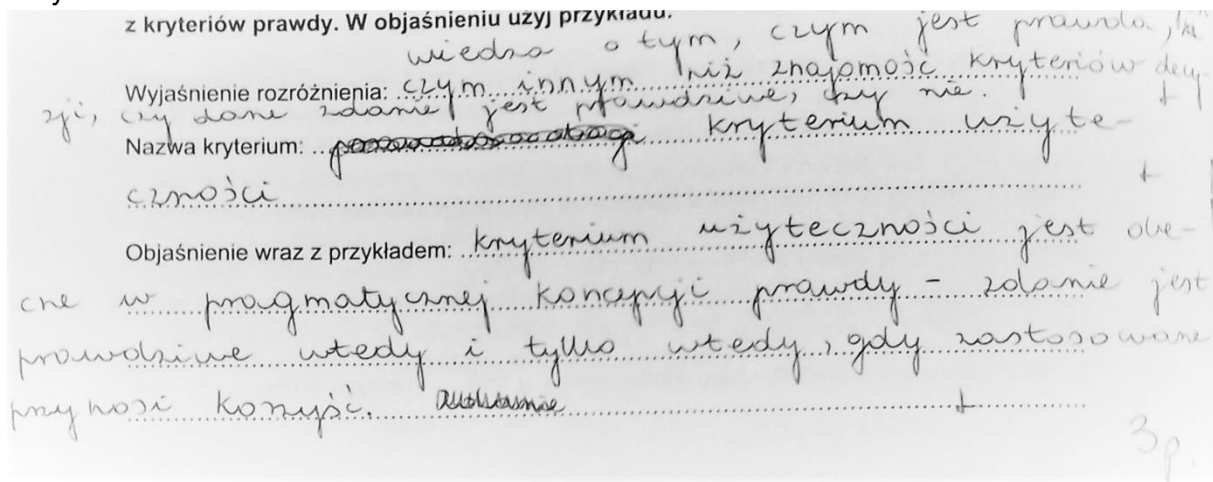 z kryteriów prawdy. W objaśnieniu użyj przykładu.
wiedza o tym, czym jest prawda,
Wyjaśnienie rozróżnienia: czym innym niż znajomość kryteriów decy-
zji, czy dane zdanie jest prawdziwe, czy nie. +
Nazwa kryterium: kryterium użyte-
czności +
Objaśnienie wraz z przykładem: kryterium użyteczności jest obe-
cne w pragmatycznej koncepcji prawdy - zdanie jest
prawdziwe wtedy i tylko wtedy, gdy zastosowane
przynosi korzyść. +
3p.